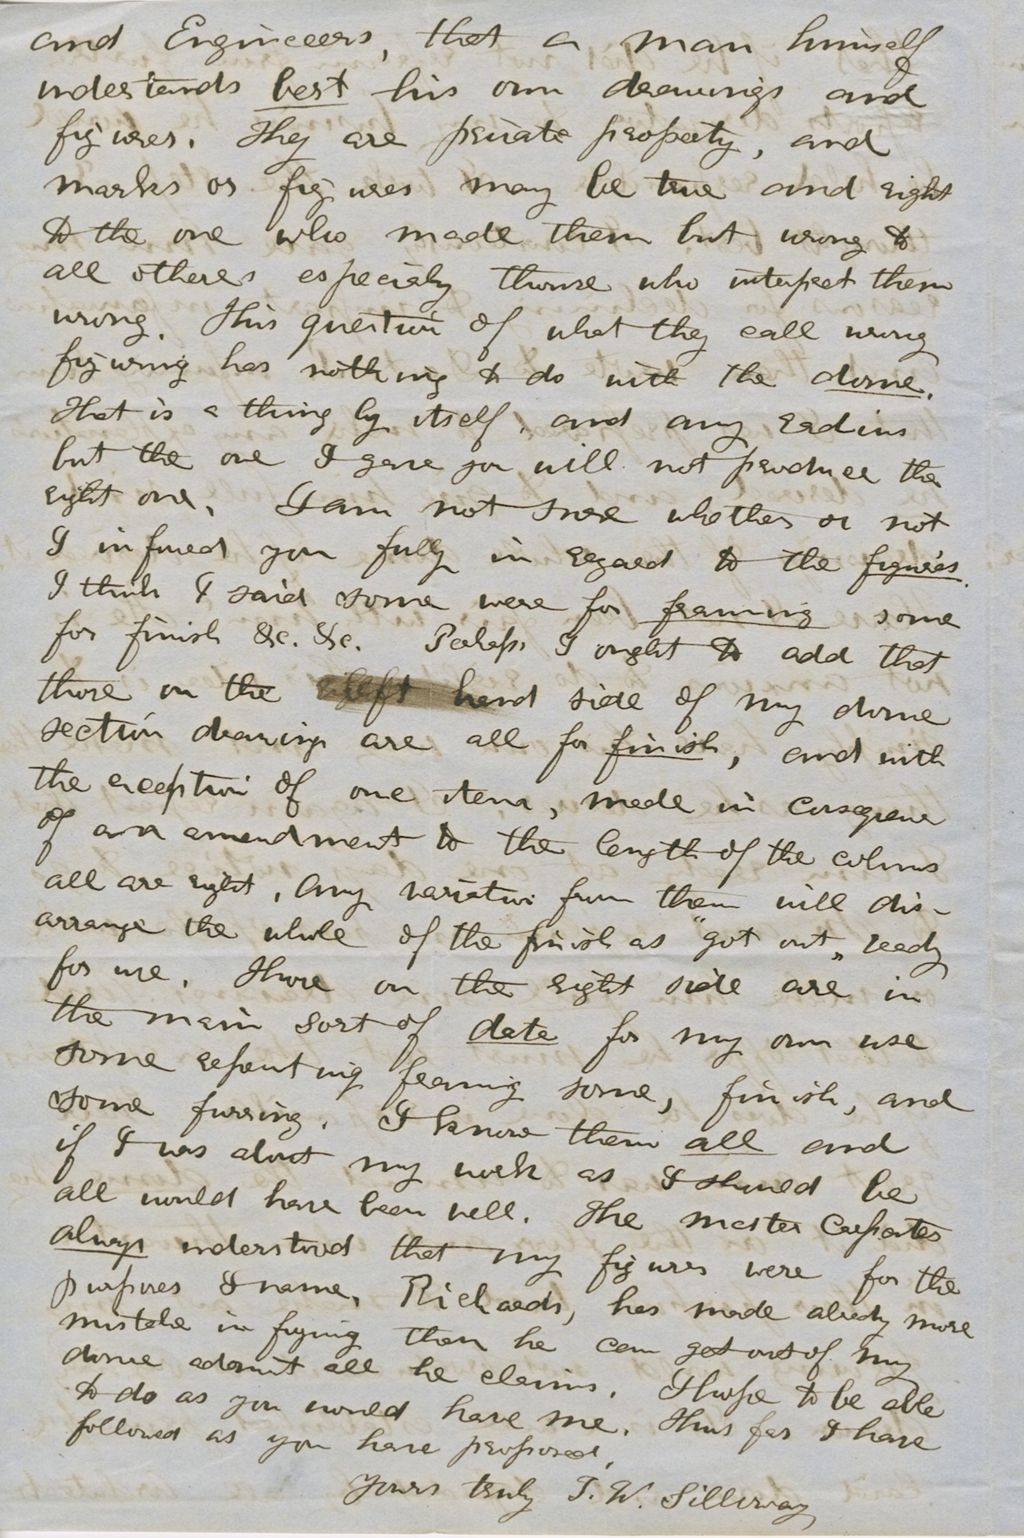 and Engineers, that a man himself
understands best his own drawings and
figures. They are private property, and
marks or figures may be true and right
to the one who made them but wrong to
all otheres especialy those who interpret them
wrong. This question of what they call wrong
figuring has nothing to do with the dome.
That is a thing by itself, and any radius
but the one I gave you will not produce the
right one. I am not sure whether or not
I infored you fully in regard to the figures.
I think I said some were for framing some
for finish &c. &c. Perhaps I ought to add that
those on the left hand side of my dome
section drawings are all for finish, and with
the exception of one item, made in
of an amendment to the length of the colums
all are right, any variation from them will dis-
arrange the whole of the finish as "got out" ready
for use. Those on the right side are in
the main sort of data for my own use
some framing some, finish, and
some furring. I know them all and
if I was about my work as I should be
all would have been well. The master Carpenter
always understood that my figures were for the
purposes I name. Richards, has made alredy more
mistake in then he can get out of my
dome admit all he claims. I hope to be able
to do as you would have me. Thus far I have
followed as you have proposed.
Yours truly T. W. Silloway